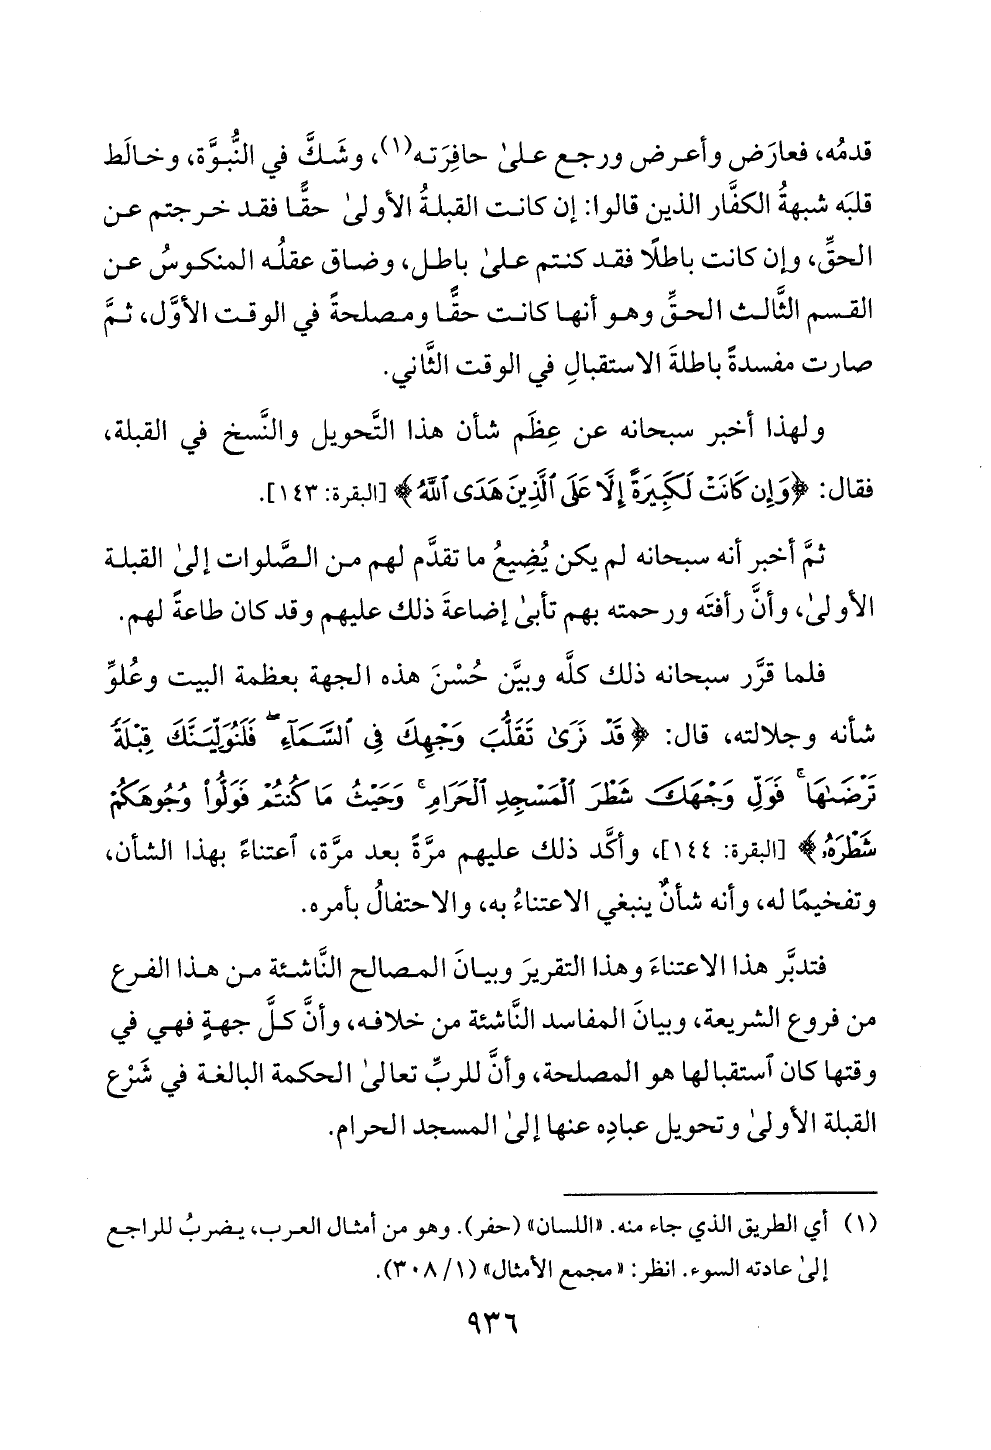 قدمُه، فعارَض وأعرض ورجع علىٰ حافِرَته(١)، وشَكَّ في النُّبوَّة، وخالَط
قلبَه شبهةُ الكفَّار الذين قالوا: إن كانت القبلةُ الأولىٰ حقًّا فقد خرجتم عن
الحقِّ، وإن كانت باطلًا فقد كنتم علىٰ باطل، وضاق عقلُه المنكوسُ عن
القسم الثَّالث الحقِّ وهو أنها كانت حقًّا ومصلحةً في الوقت الأوَّل، ثمَّ
صارت مفسدةً باطلةَ الاستقبالِ في الوقت الثَّاني.
ولهذا أخبر سبحانه عن عِظَم شأن هذا التَّحويل والنَّسخ في القبلة،
فقال: ﴿وَإِن كَانَتْ لَكَبِيرَةً إِلَّا عَلَى ٱلَّذِينَ هَدَى ٱللَّهُ﴾ [البقرة: ١٤٣].
ثمَّ أخبر أنه سبحانه لم يكن يُضِيعُ ما تقدَّم لهم من الصَّلوات إلىٰ القبلة
الأولىٰ، وأنَّ رأفتَه ورحمته بهم تأبىٰ إضاعةَ ذلك عليهم وقد كان طاعةً لهم.
فلما قرَّر سبحانه ذلك كلَّه وبيَّن حُسْنَ هذه الجهة بعظمة البيت وعُلوِّ
شأنه وجلالته، قال: ﴿قَدْ نَرَىٰ تَقَلُّبَ وَجْهِكَ فِي ٱلسَّمَآءِ ۖ فَلَنُوَلِّيَنَّكَ قِبْلَةً
تَرْضَىٰهَا ۚ فَوَلِّ وَجْهَكَ شَطْرَ ٱلْمَسْجِدِ ٱلْحَرَامِ ۚ وَحَيْثُ مَا كُنتُمْ فَوَلُّوا۟ وُجُوهَكُمْ
شَطْرَهُۥ﴾ [البقرة: ١٤٤]، وأكَّد ذلك عليهم مرَّةً بعد مرَّة، ٱعتناءً بهذا الشأن،
وتفخيمًا له، وأنه شأنٌ ينبغي الاعتناءُ به، والاحتفالُ بأمره.
فتدبَّر هذا الاعتناءَ وهذا التقريرَ وبيانَ المصالح النَّاشئة من هذا الفرع
من فروع الشريعة، وبيانَ المفاسد النَّاشئة من خلافه، وأنَّ كلَّ جهةٍ فهي في
وقتها كان ٱستقبالها هو المصلحة، وأنَّ للربِّ تعالىٰ الحكمة البالغة في شَرْع
القبلة الأولىٰ وتحويل عبادِه عنها إلىٰ المسجد الحرام.
(١) أي الطريق الذي جاء منه. «اللسان» (حفر). وهو من أمثال العرب، يضربُ للراجع
إلىٰ عادته السوء. انظر: «مجمع الأمثال» (١/ ٣٠٨).
٩٣٦